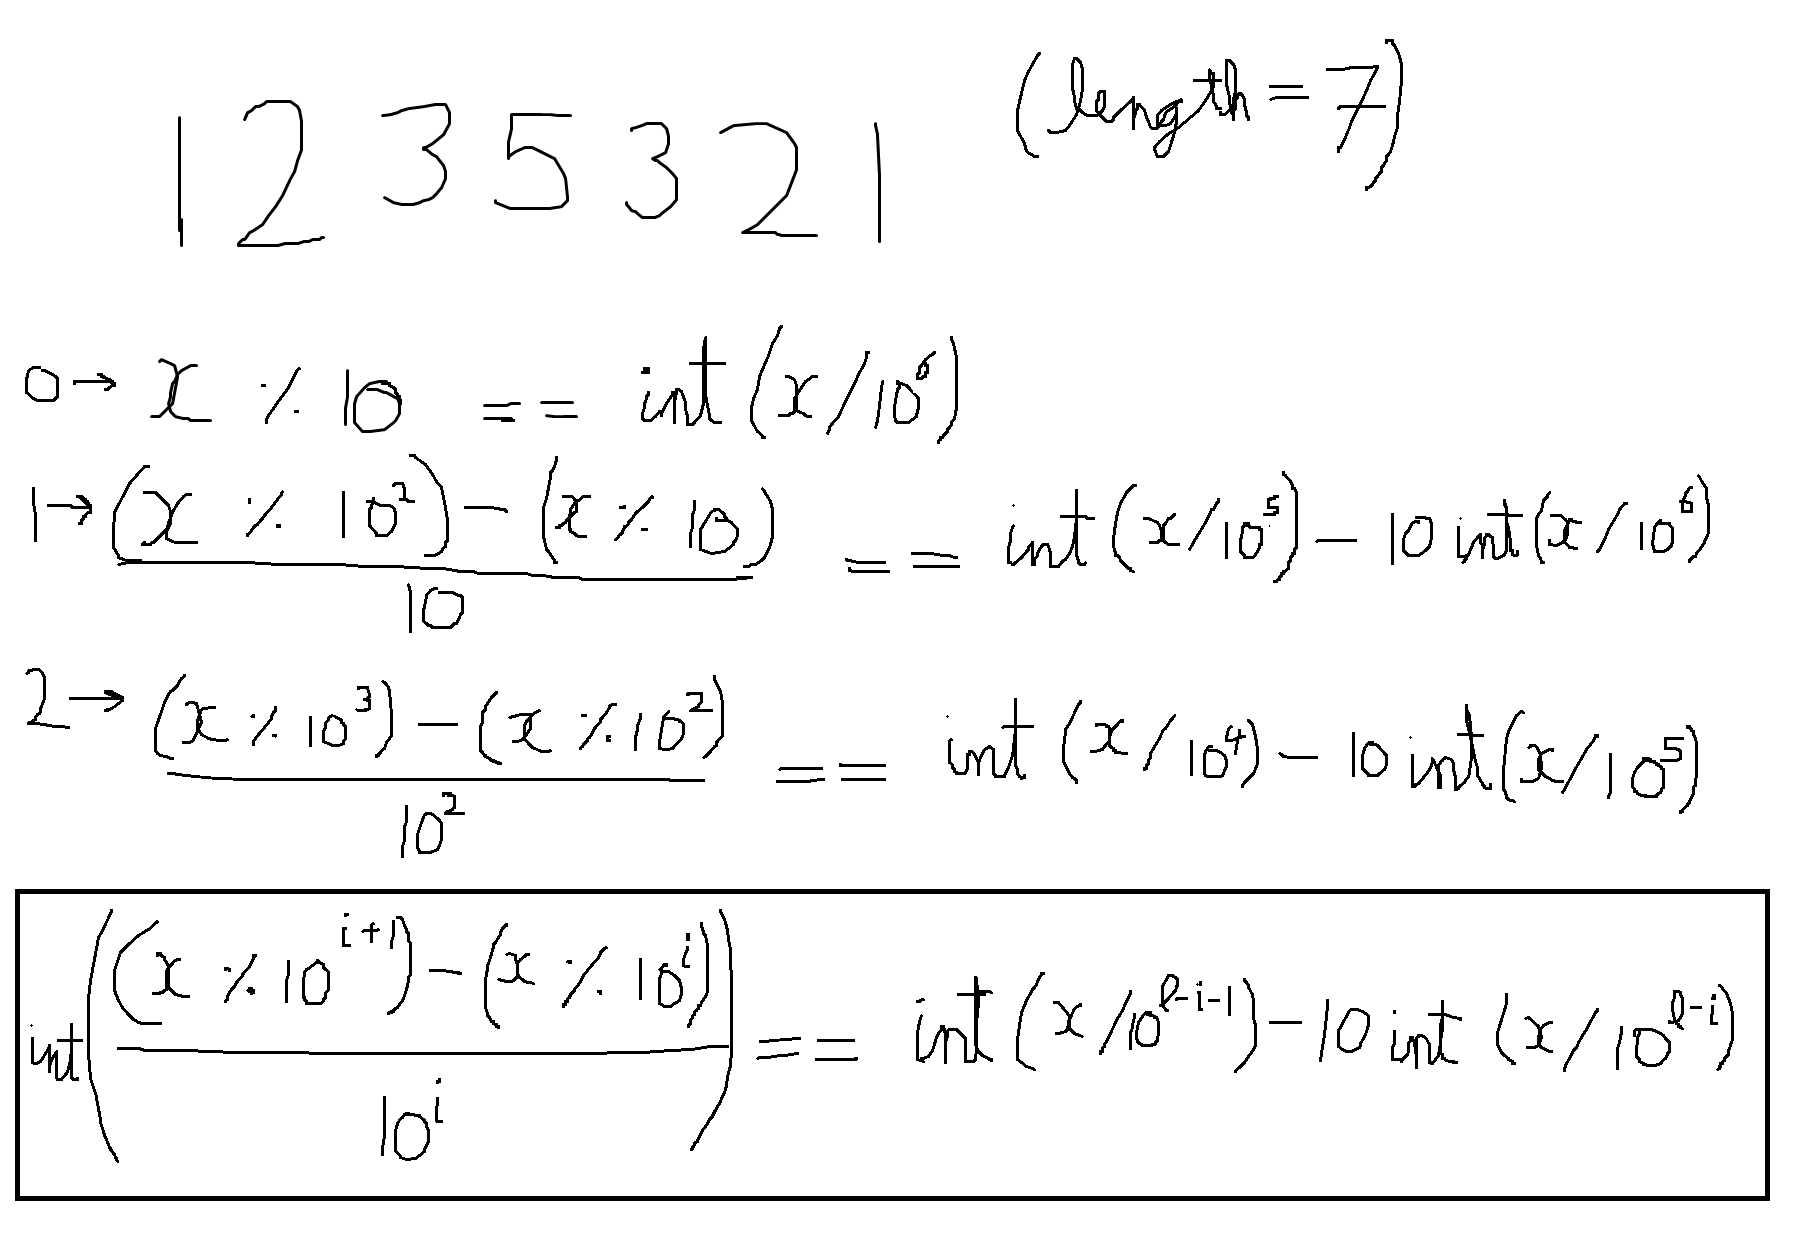 1 2 3 5 3 2 1 (length = 7)
0 → x % 10 == int (x/10⁶)
1 → ((x % 10²) - (x % 10)) / 10 == int (x/10⁵) - 10 int (x/10⁶)
2 → ((x % 10³) - (x % 10²)) / 10² == int (x/10⁴) - 10 int (x/10⁵)
int (((x % 10^(i+1)) - (x % 10^i)) / 10^i) == int (x/10^(l-i-1)) - 10 int (x/10^(l-i))